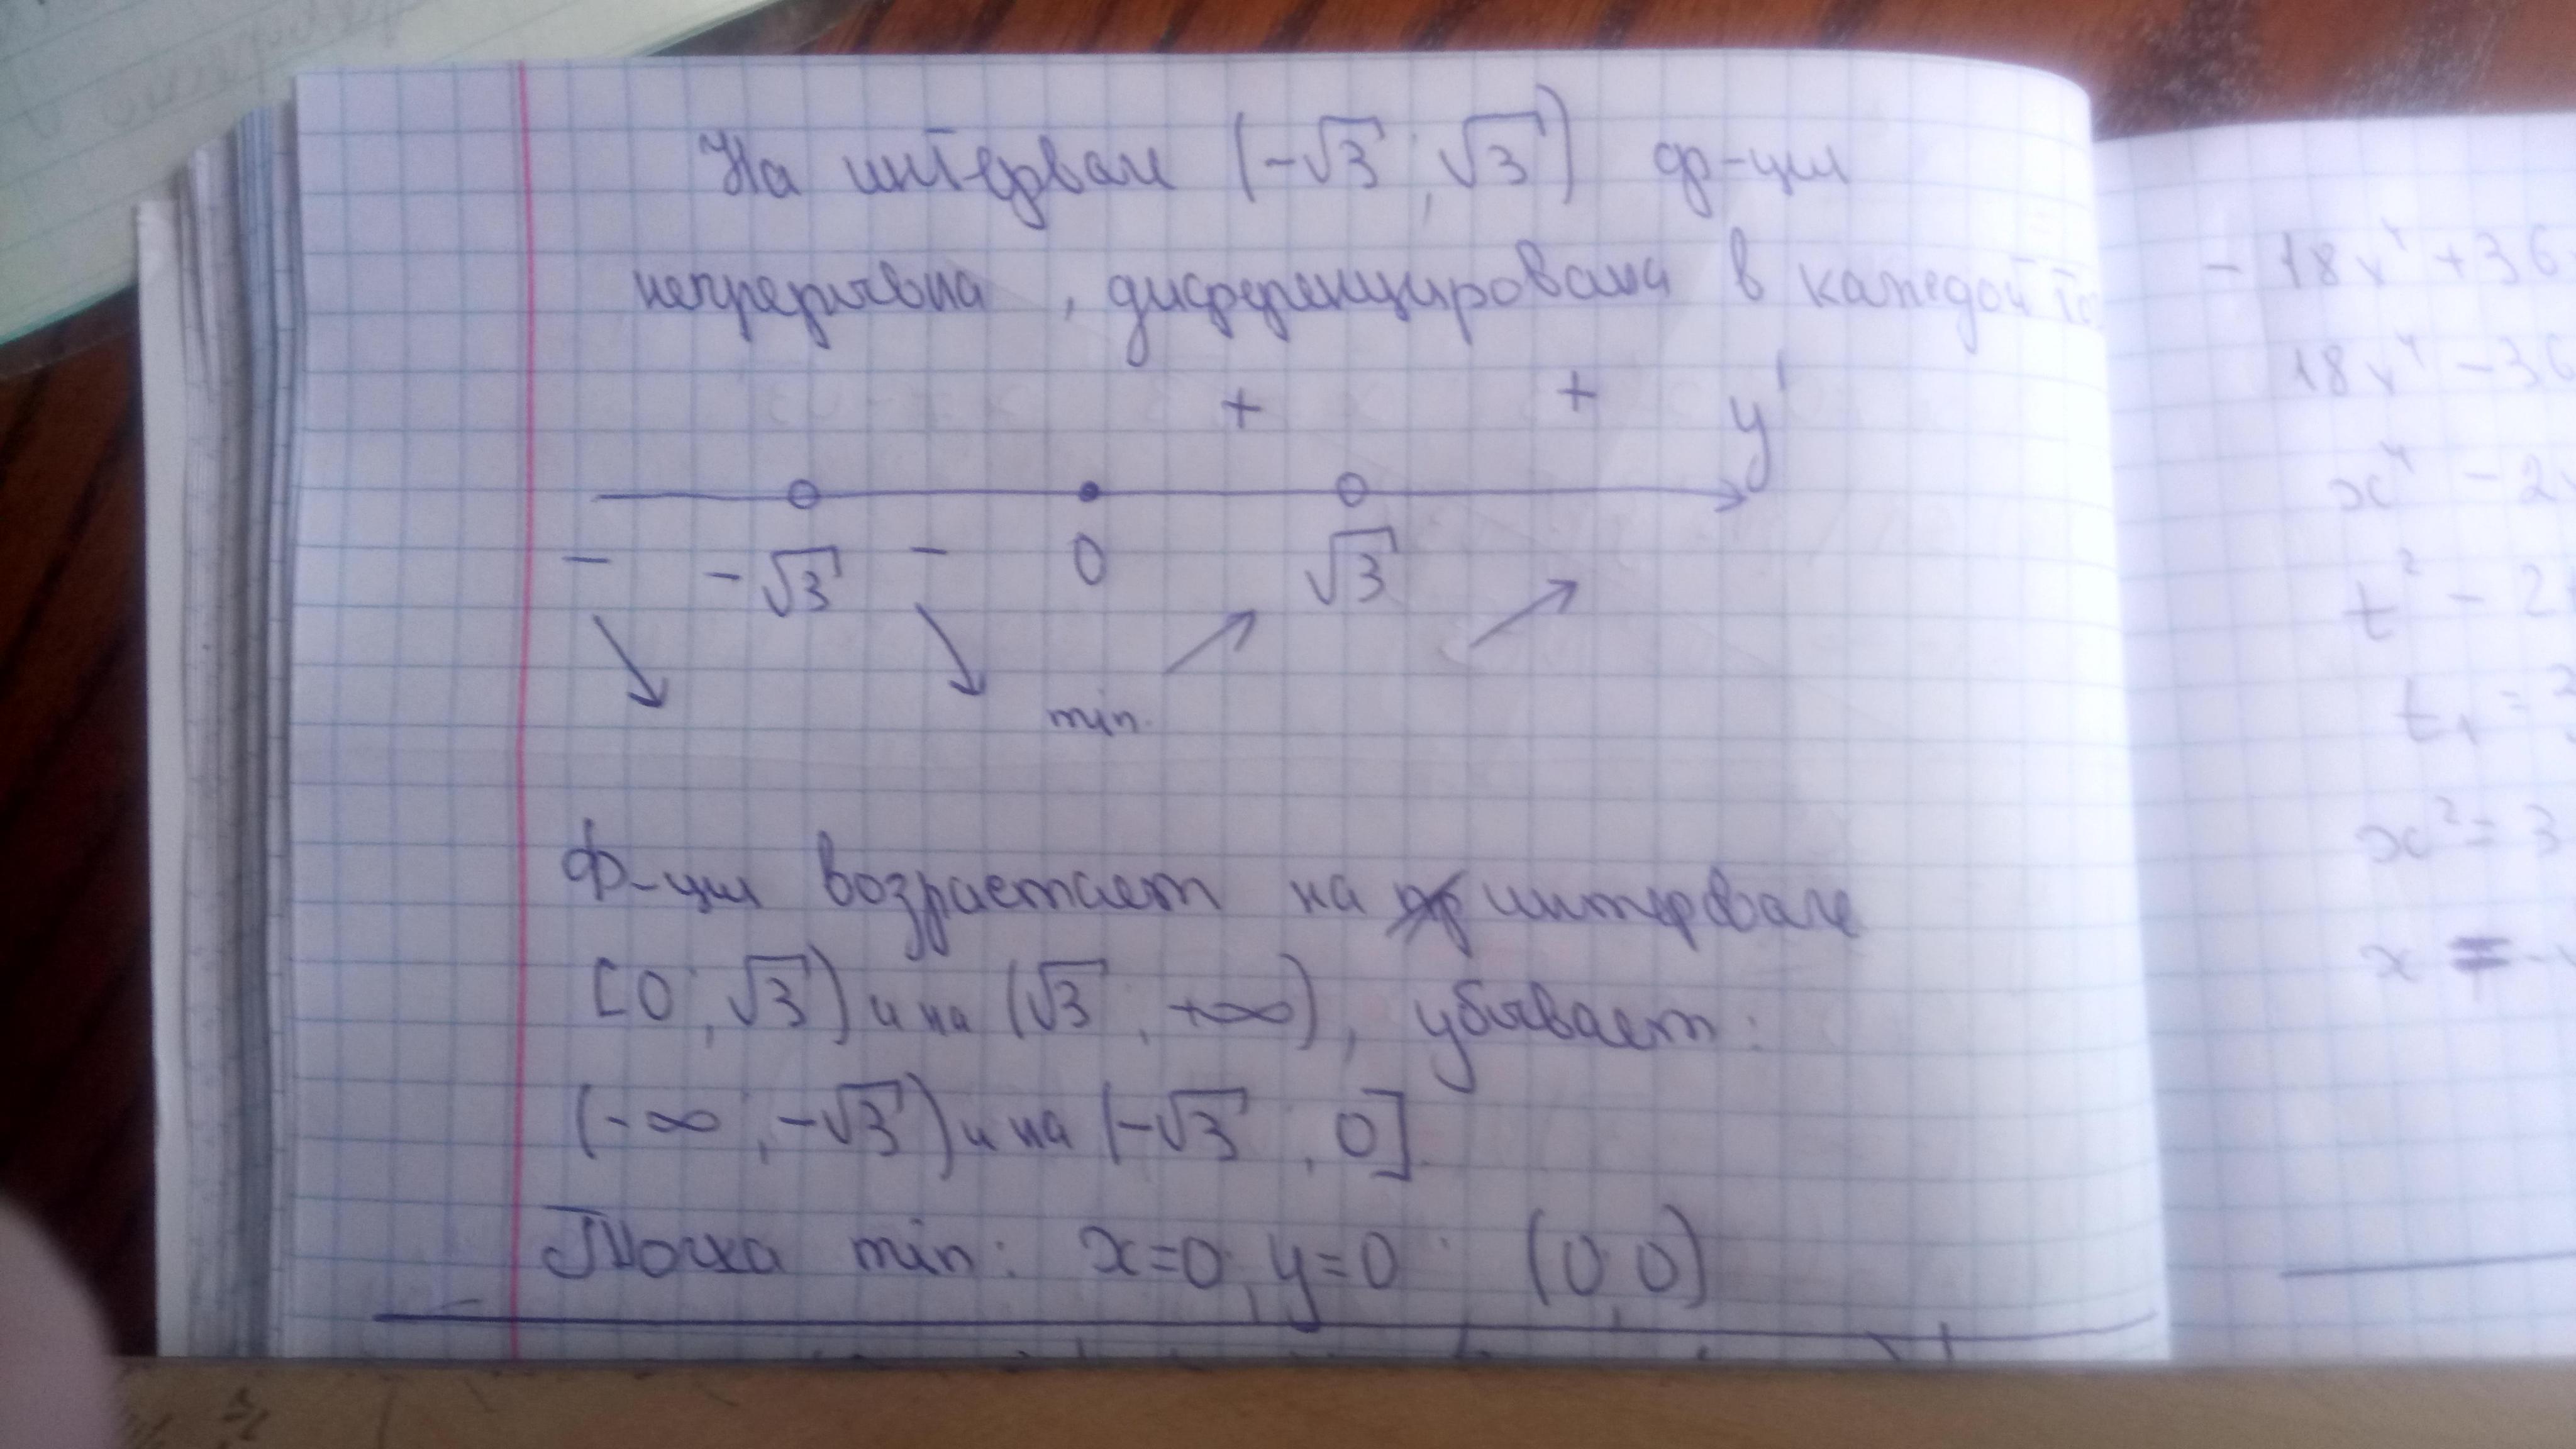 На интервале (-√3; √3) ф-ция
непрерывна, дифференцирована в каждой
+ + y'
- -√3 - 0 √3
min.
Ф-ция возрастает на интервале
[0; √3) и на (√3; +∞), убывает:
(-∞; -√3) и на (-√3; 0]
Точка min: x=0; y=0 (0;0)
- 18x⁴ + 36
18x⁴ - 36
x⁴ - 2
t² - 2
t₁ = 3
x² = 3
x = -